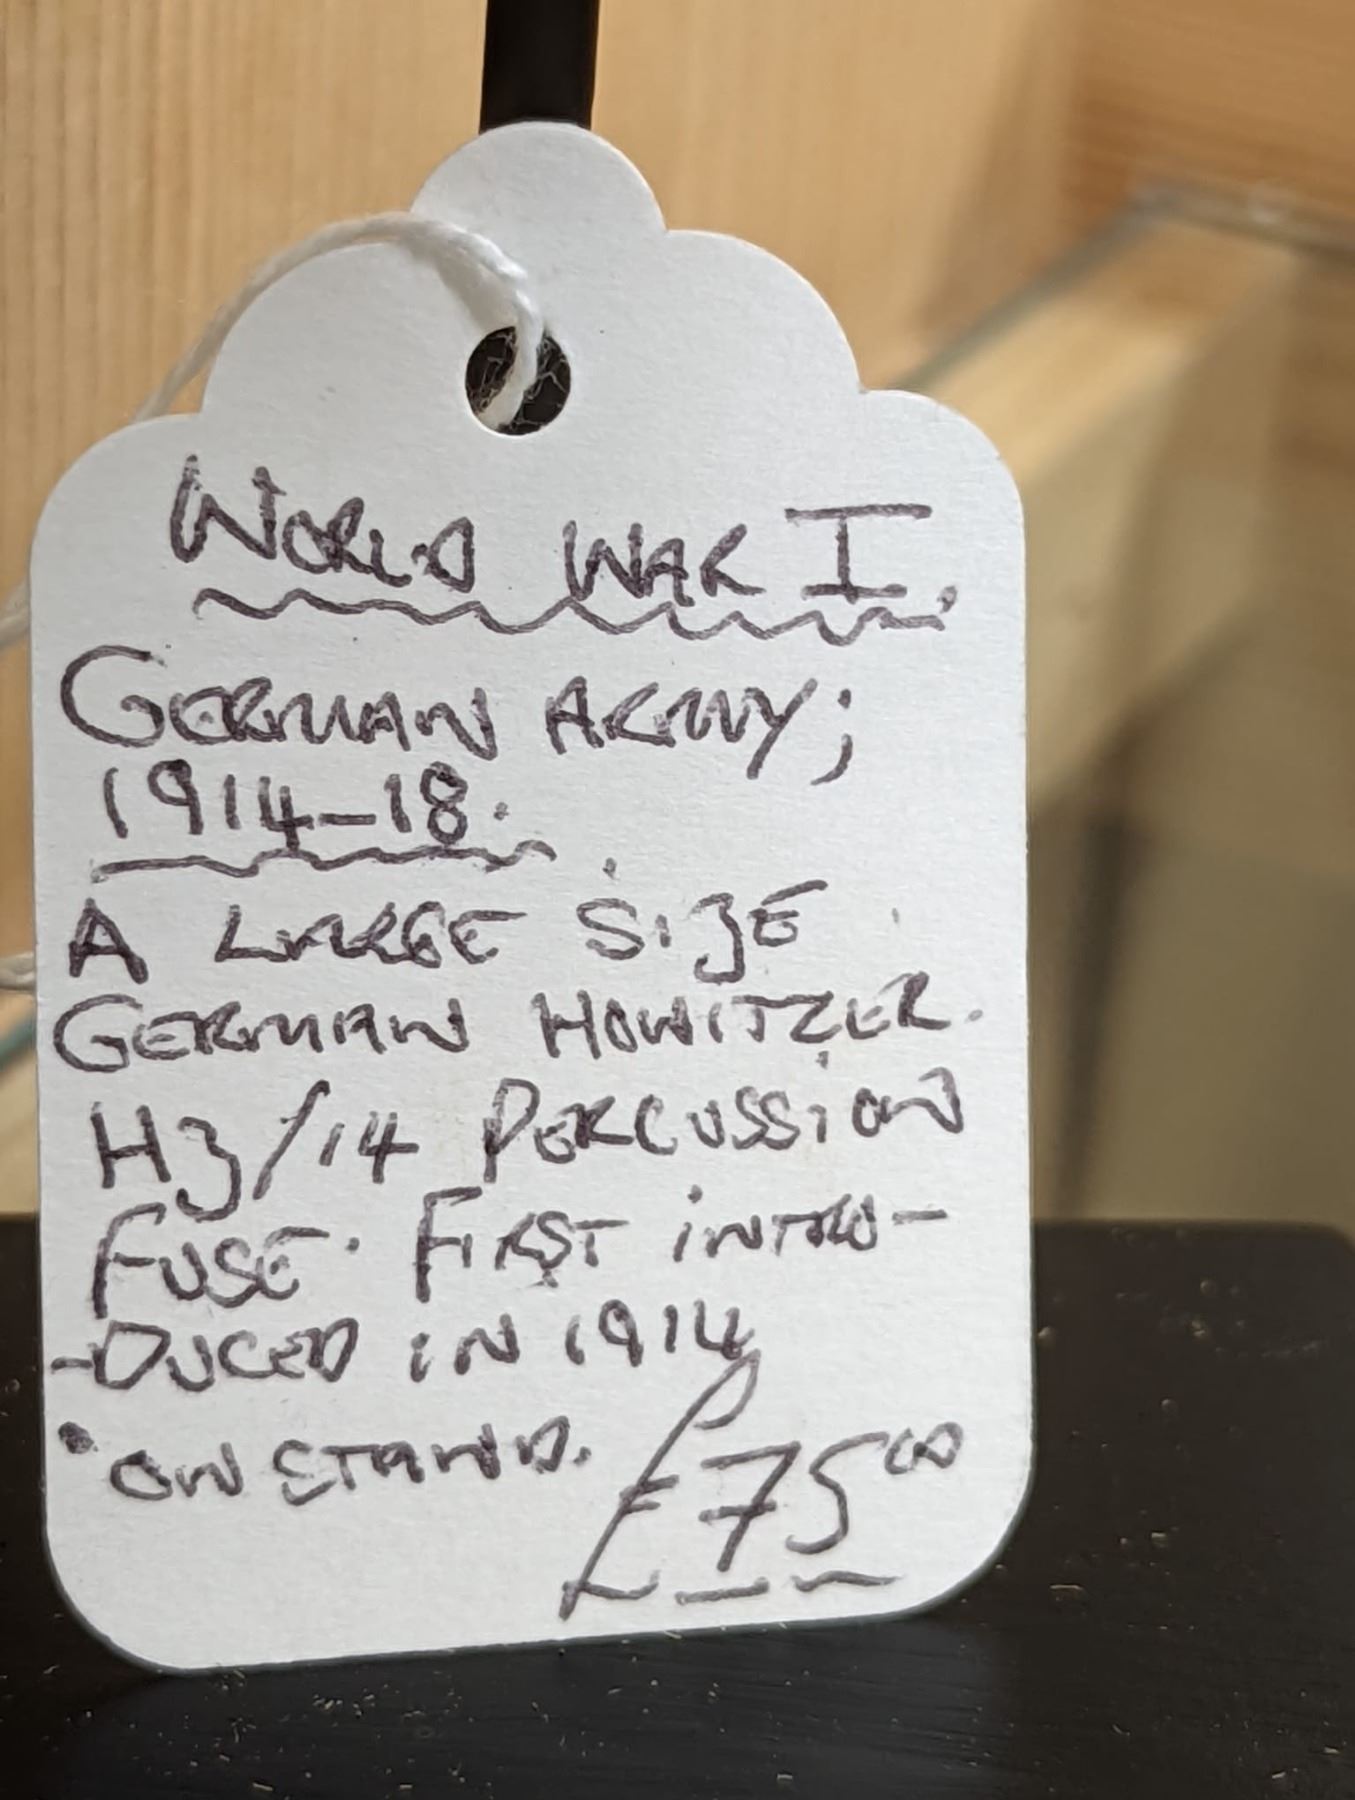 WORLD WAR I.
GERMAN ARMY;
1914-18.
A LARGE SIZE
GERMAN HOWITZER.
HZ/14 PERCUSSION
FUSE. FIRST INTRO-
-DUCED IN 1914
• ON STAND. £75⁰⁰